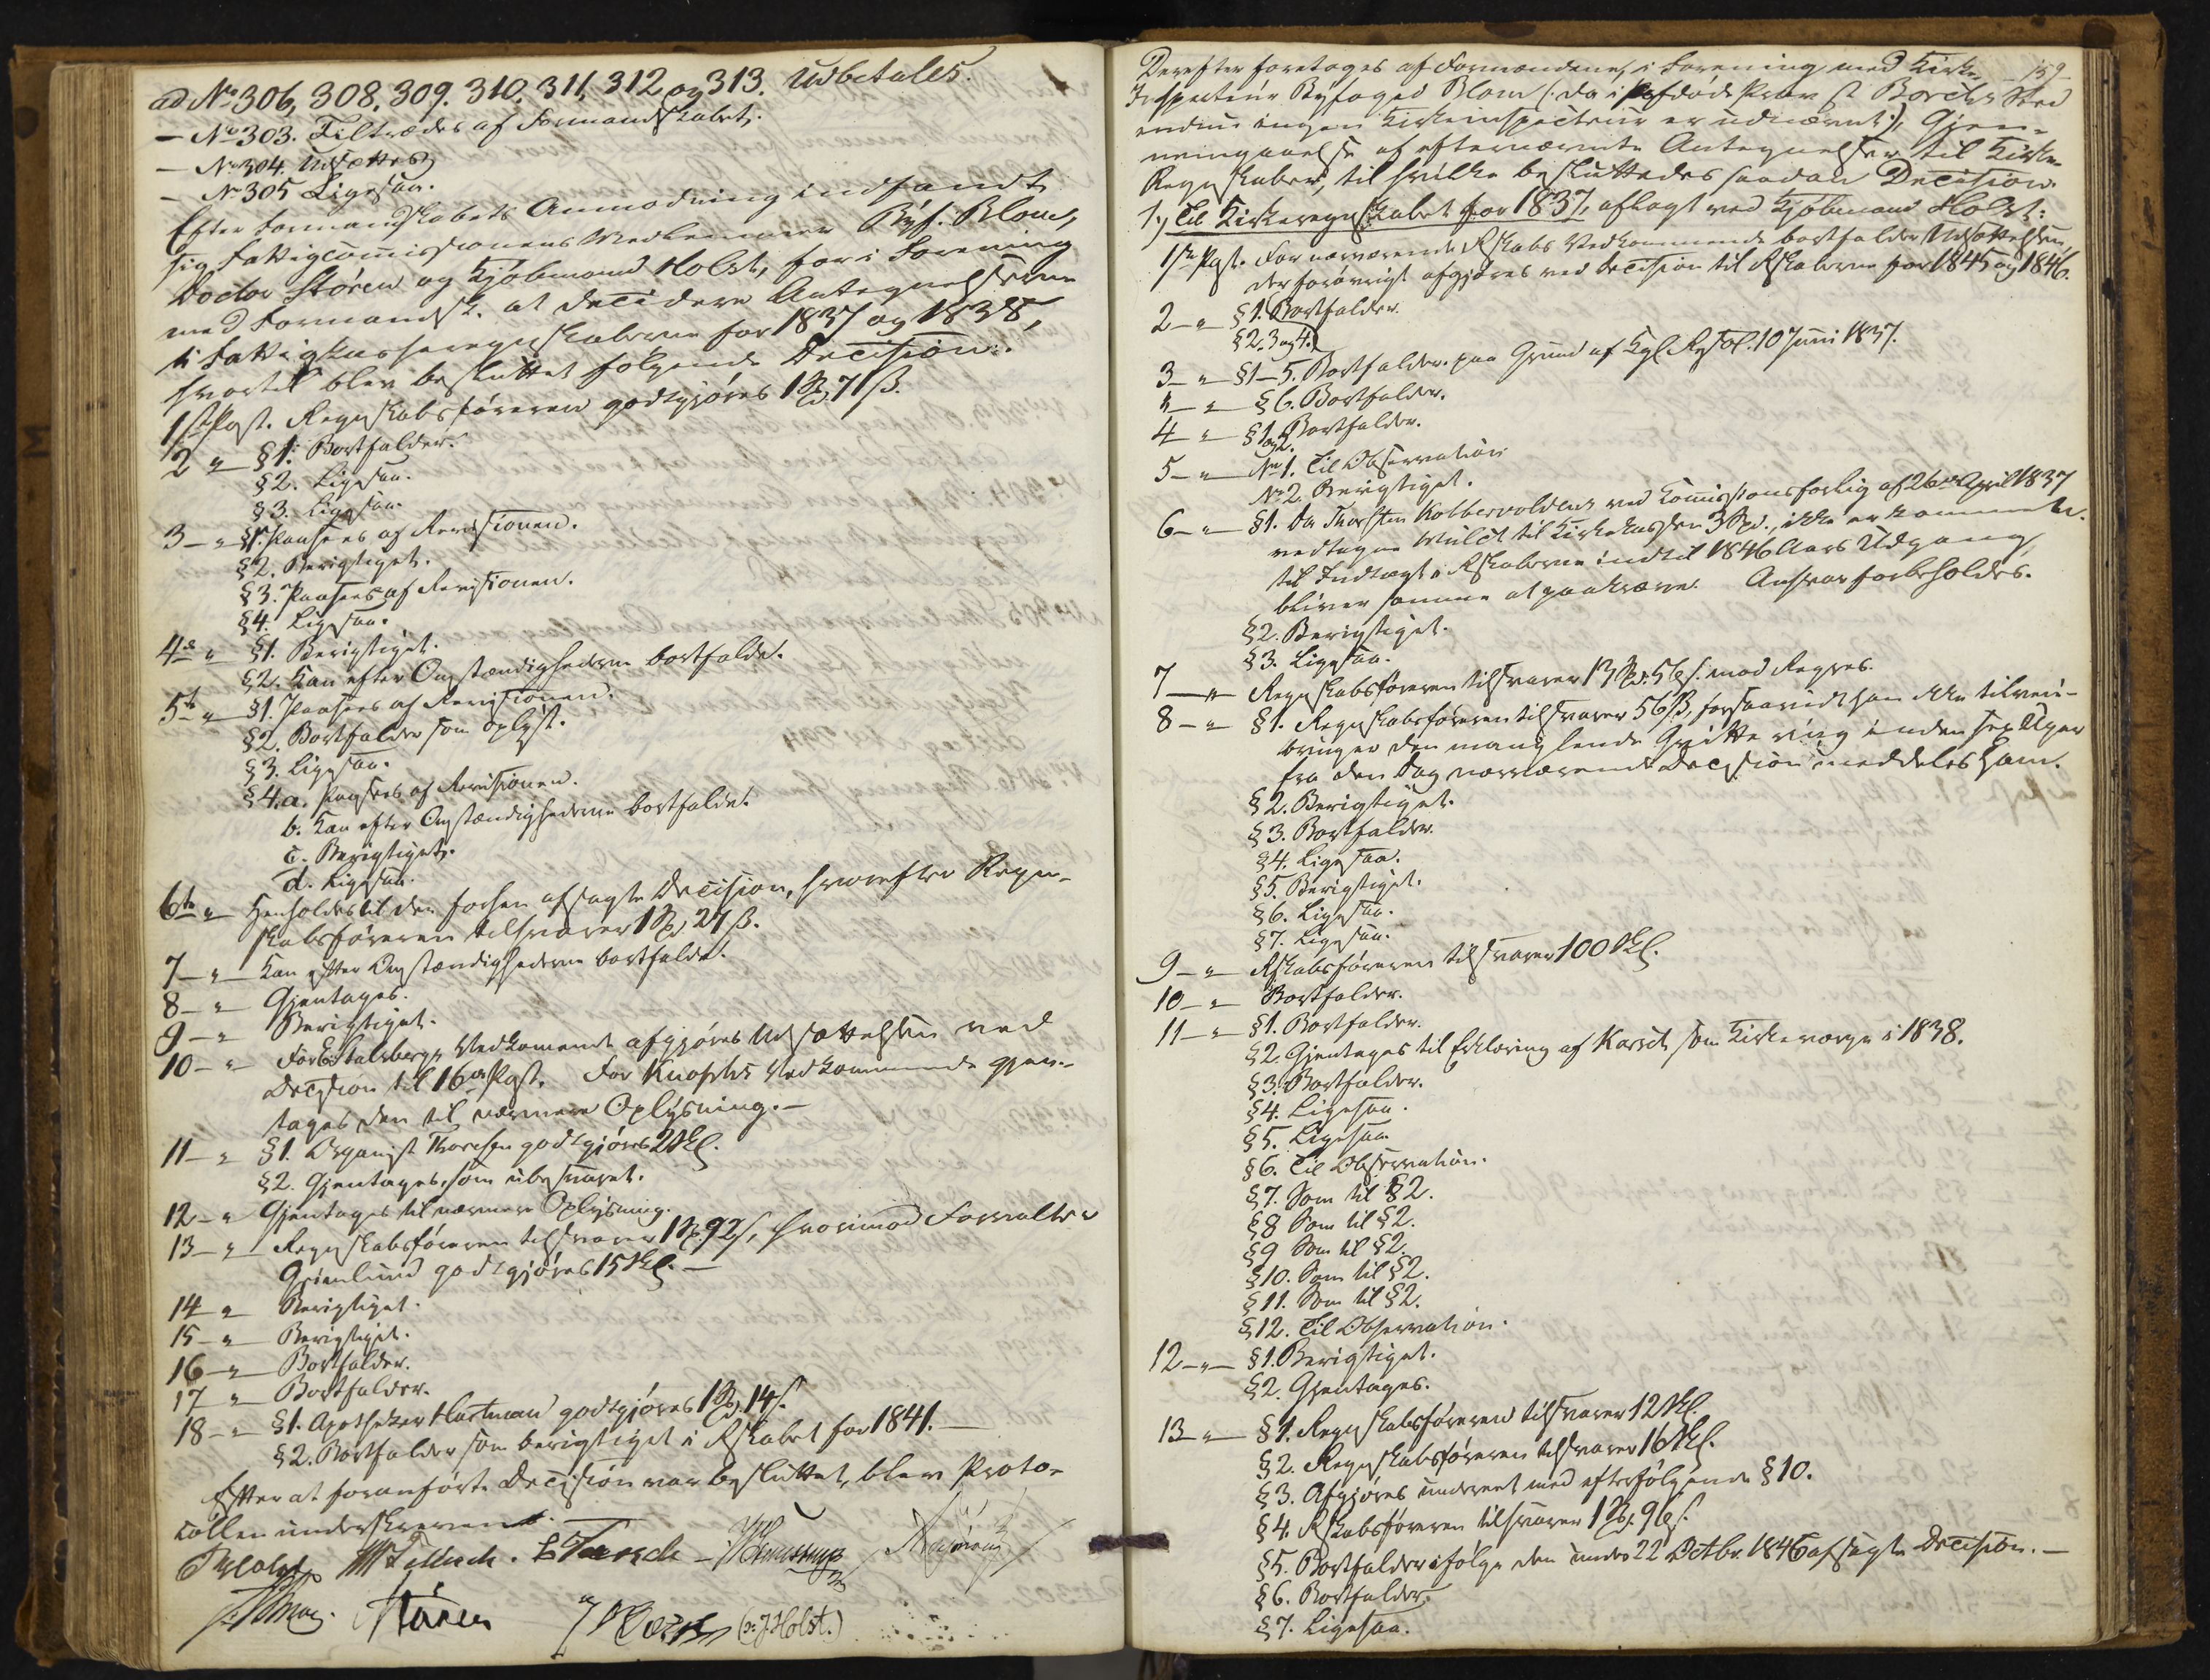 ad No 306, 308. 309. 310. 311, 312 og 313. Udbetales.
- No 303. Tiltrædes af Formandskabet.
- No 304. Udsættes
- No 305 Ligesaa.
Efter Formandskabets Anmodning indfandt
sig Fattigcommissionens Medlemmer Byf. Blom,
Doctor Stören og Kjøbmand Holst, for i Forening
med Formandsk. at decidere Antegnelserne
til Fattigkasseregnskaberne for 1837 og 1838,
hvortil blev besluttet følgende Decision:
1ste Post. Regnskabsføreren godtgjøres 1 Spd. 71 ß.
2 " - § 1. Bortfalder.
§ 2. Ligesaa.
§ 3. Ligesaa.
3 - " § 1. Paasees af Revisionen.
§ 2. Berigtiget.
§ 3. Paasees af Revisionen.
§ 4. Ligesaa.
4de " § 1. Berigtiget.
§ 2. Kan efter Omstændighederne bortfalde.
5te " § 1. Paasees af Revisionen.
§ 2. Bortfalder som oplyst.
§ 3. Ligesaa.
§ 4. a. Paasees af Revisionen.
b. Kan efter Omstændighederne bortfalde.
c. Berigtiget.
d. Ligesaa.
6te " Henholdes til den forhen afsagte Decision, hvorefter Regn-
skabsføreren tilsvarer 1 Spd. 24 ß.
7 - " - Kan efter Omstændighederne bortfalde.
8 - " Gjentages.
9 - " Berigtiget.
10 - " For Stalsbergs Vedkommende afgjøres Udsættelsen ved
Decision til 16de Post. For Knophs Vedkommende gjen-
tages den til nærmere Oplysning. -
11 - " § 1. Organist Thoresen godtgjøres 2 Skl.
§ 2. Gjentages, som ubesvaret.
12 - " Gjentages til nærmere Oplysning.
13 - " Regnskabsføreren tilsvarer 1 Spd. 92 ß, hvorimod Forvalter
Grønlund godtgjøres 15 Skl. -
14 - " Berigtiget.
15 - " Berigtiget.
16 - " Bortfalder.
17 " Bortfalder.
18 - " § 1. Apotheker Hartman godtgjøres 1 Spd. 14 ß.
§ 2. Bortfalder som berigtiget i Rskabet for 1841. -
Efter at foranførte Decision var besluttet, blev Proto-
collen underskreven.
Stören (o: J. Holst.)
- 159 -
Derefter foretoges af Formændene, i Forening med Kirke-
Inspecteur Byfoged Blom (: da i afdøde Provst Borchs Sted
endnu ingen Kirkeinspecteur er udnævnt :), Gjen-
nemgaaelse af efternævnte Antegnelser til Kirke-
Regnskaber, til hvilke besluttedes saadan Decision.
1,) Til Kirkeregnskabet for 1837, aflagt ved Kjøbmand Holst:
1ste Post. For nærværende Rskabs Vedkommende bortfalder Udsættelsen,
der forøvrigt afgjøres ved Decision til Rskaberne for 1845 og 1846.
2 - " § 1. Bortfalder.
§ 2. 3 og 4.
3 - " § 1 - 5. Bortfalder. paa Grund af Kgl. Resol. 10 Juni 1837.
" - " § 6. Bortfalder.
4 - " § 1 og 2. Bortfalder.
5 - " No 1. Til Observation
No 2. Berigtiget.
6 - " § 1. Da Thorsten Kolbersvoldens ved Commissionsforlig af 26de April 1837
vedtagne Mulct til Kirkekassen 3 Spd., ikke er kommen
til Indtægt i Rskaberne indtil 1846 Aars Udgang,
bliver samme at paakræve. Ansvar forbeholdes.
§ 2. Berigtiget.
§ 3. Ligesaa.
7 - " Regnskabsføreren tilsvarer 13 Spd. 56 ß. mod Regres.
8 - " § 1. Regnskabsføreren tilsvarer 56 ß, forsaavidt han ikke tilveie-
bringer den manglende Qvittering inden sex Uger
fra den Dag nærværende Decision meddeles ham.
§ 2. Berigtiget.
§ 3. Bortfalder.
§ 4. Ligesaa.
§ 5. Berigtiget.
§ 6. Ligesaa.
§ 7. Ligesaa.
9 - " Rskabsføreren tilsvarer 100 Skl.
10 - " Bortfalder.
11 - " § 1. Bortfalder.
§ 2. Gjentages til Erklæring af Karsch som Kirkeværge i 1838.
§ 3. Bortfalder.
§ 4. Ligesaa.
§ 5. Ligesaa
§ 6. Til Observation.
§ 7. Som til § 2.
§ 8 Som til § 2.
§ 9 Som til § 2.
§ 10. Som til § 2.
§ 11. Som til § 2.
§ 12. Til Observation.
12 - " - § 1. Berigtiget.
§ 2. Gjentages.
13 - " § 1. Regnskabsføreren tilsvarer 12 Skl.
§ 2. Regnskabsføreren tilsvarer 16 Skl.
§ 3. Afgjøres underet med efterfølgende § 10.
§ 4. Rskabsføreren tilsvarer 1 Spd. 96 ß.
§ 5. Bortfalder ifølge den under 22 Octbr. 1846 afsagte Decision. -
§ 6. Bortfalder.
§ 7. Ligesaa.